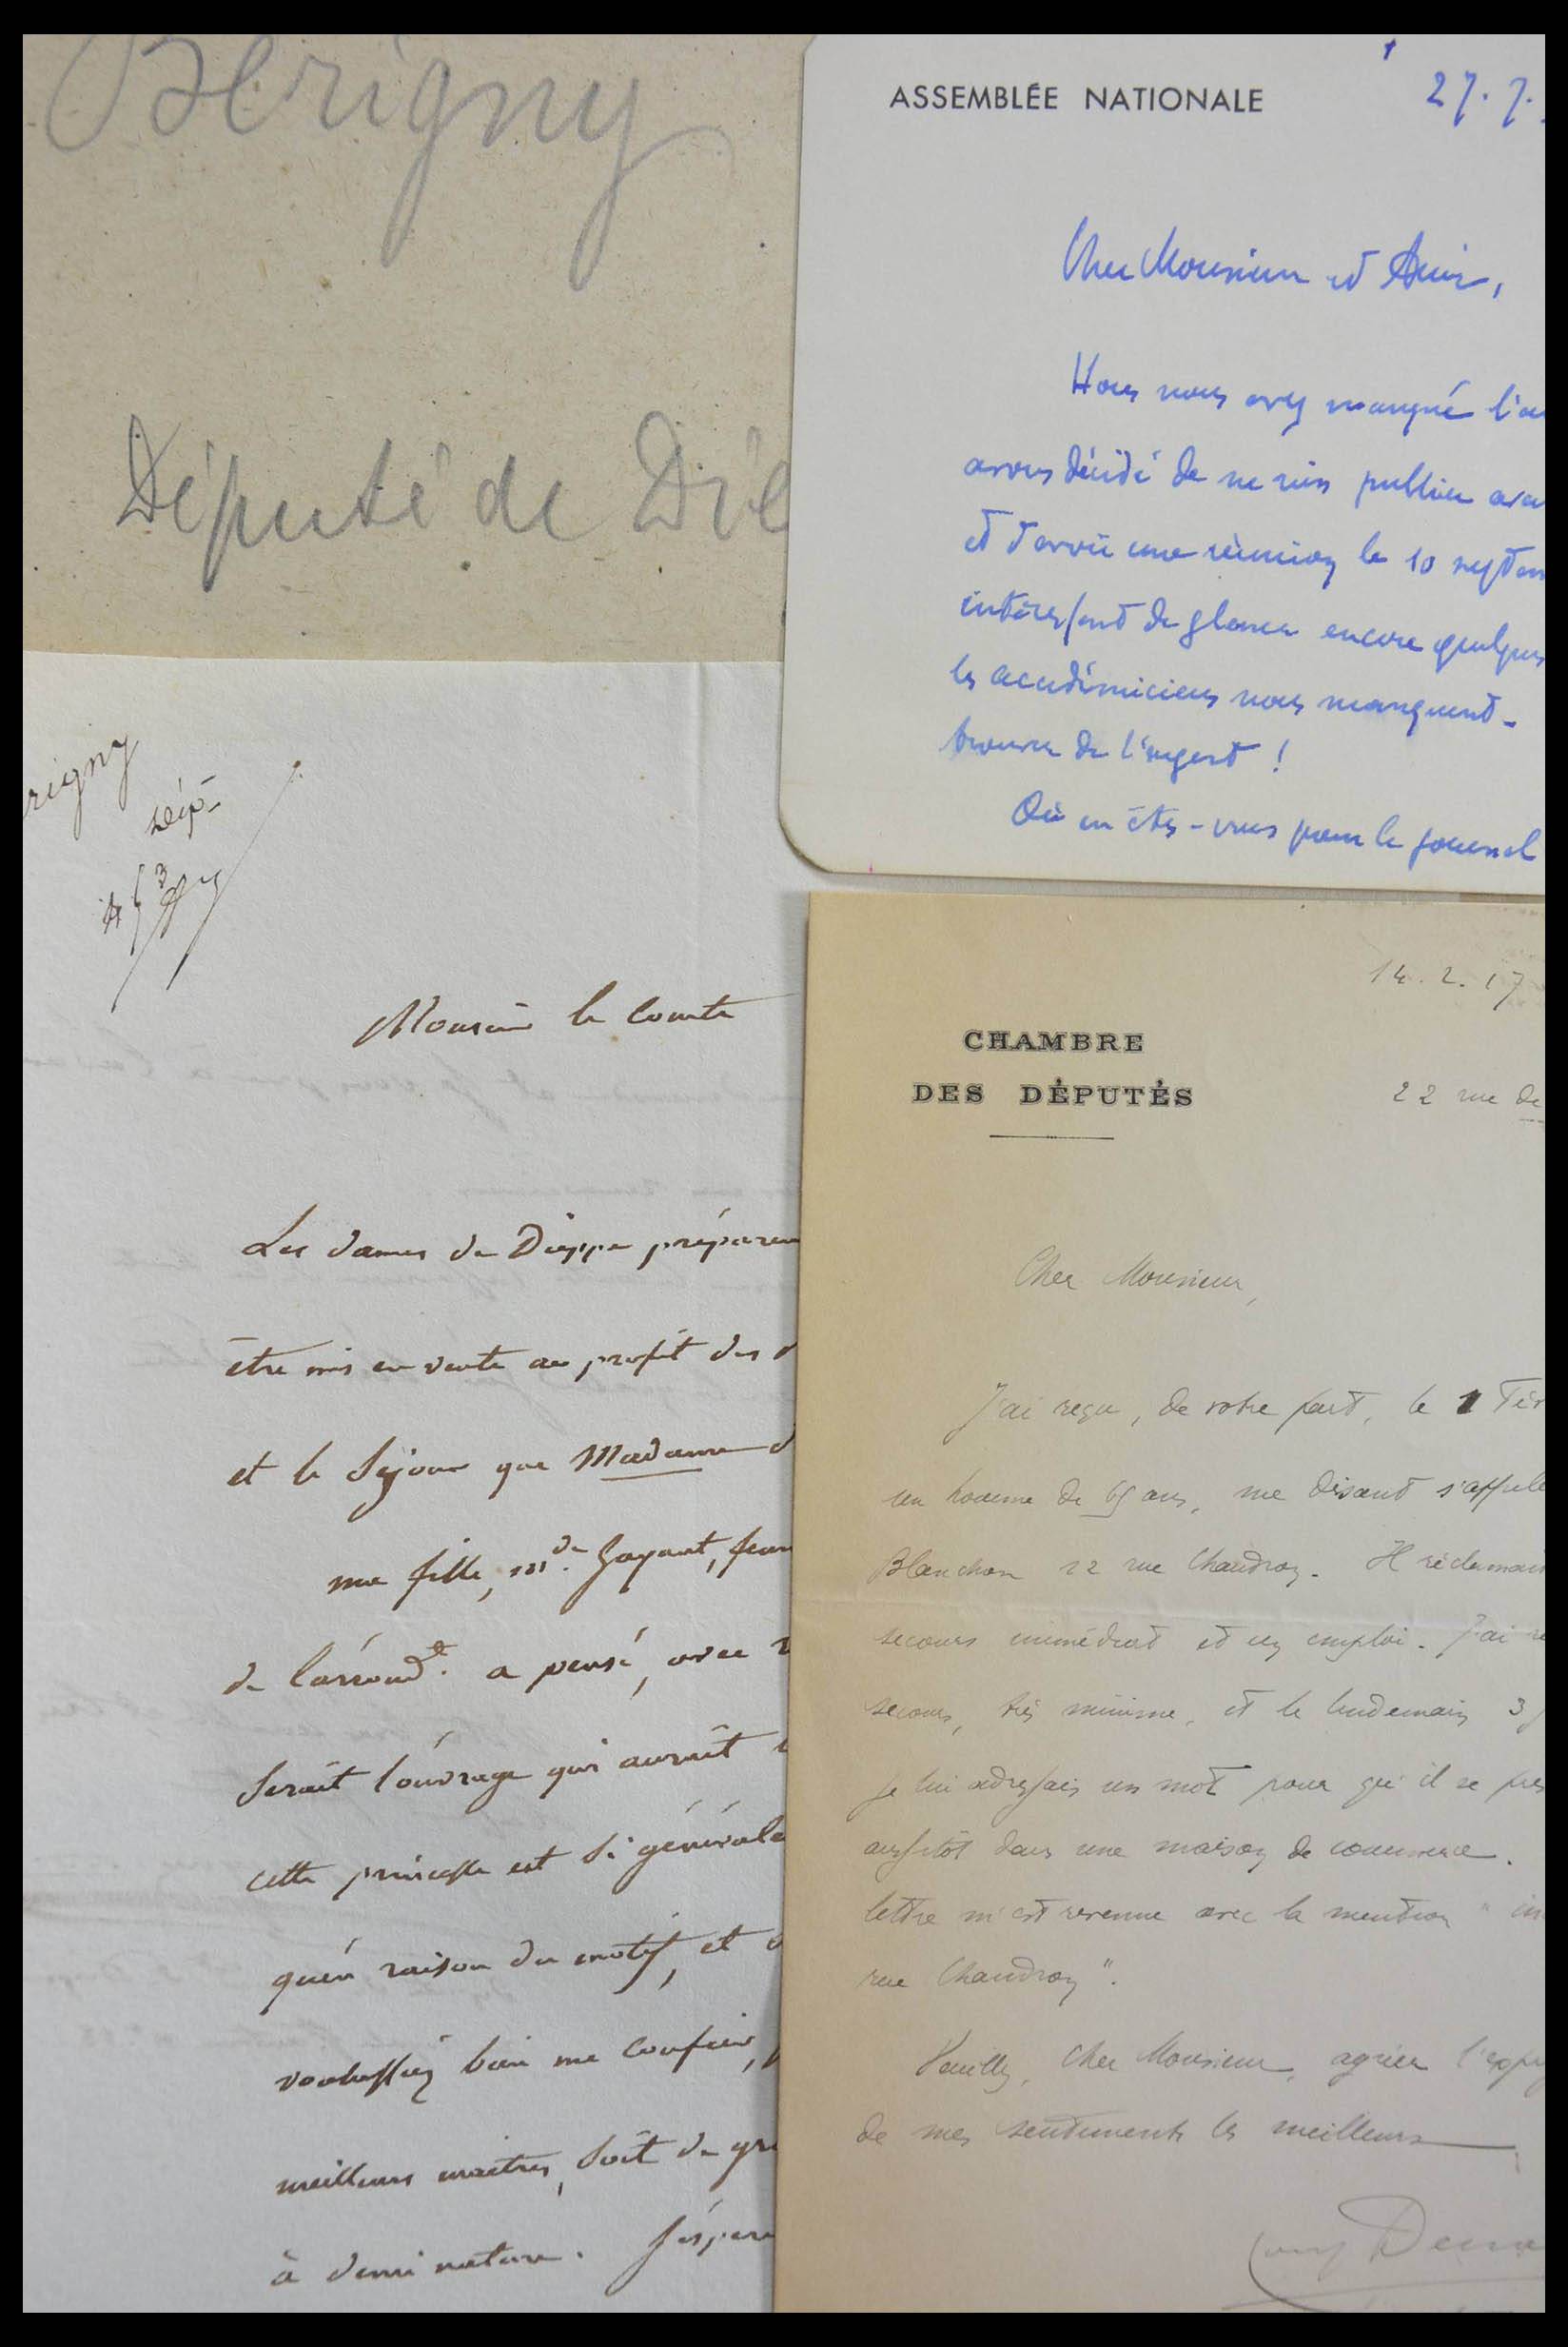 Bérigny
Député de Die
ASSEMBLÉE NATIONALE
27. 7.
Cher Monsieur et Ami,
Vous nous avez manqué l'a
avons décidé de ne rien publier ava
et d'avoir une réunion le 10 septem
intéressant de glaner encore quelques
les académiciens nous manquent-
trouver de l'argent !
Où en êtes-vous pour le journal
rigny
dép.
Monsieur le Comte
Les dames de Dieppe préparen
être mis en vente au profit des
et le Séjour que Madame
ma fille, mde. Gayant, fem
de l'arrondt. a pensé, avec
Serait l'ouvrage qui aurait
cette princesse est si générale
qu'en raison du motif, et
voulussiez bien me confier,
meilleurs maitres, soit de gr
à demi nature. J'éspere
14. 2. 17
CHAMBRE
DES DÉPUTÉS
22 rue de
Cher Monsieur,
J'ai reçu, de votre part, le 1 Fév
un homme de 65 ans, me disant s'appele
Blanchon 12 rue Chaudron. Il réclamait
secours immédiat et un emploi. J'ai re
secours, très minime, et le lendemain 3
je lui adressais un mot pour qu'il se pres
aussitôt dans une maison de commerce.
lettre m'est revenue avec la mention " in
rue Chaudron ".
Veuillez, cher Monsieur, agréer l'expre
de mes sentiments les meilleurs